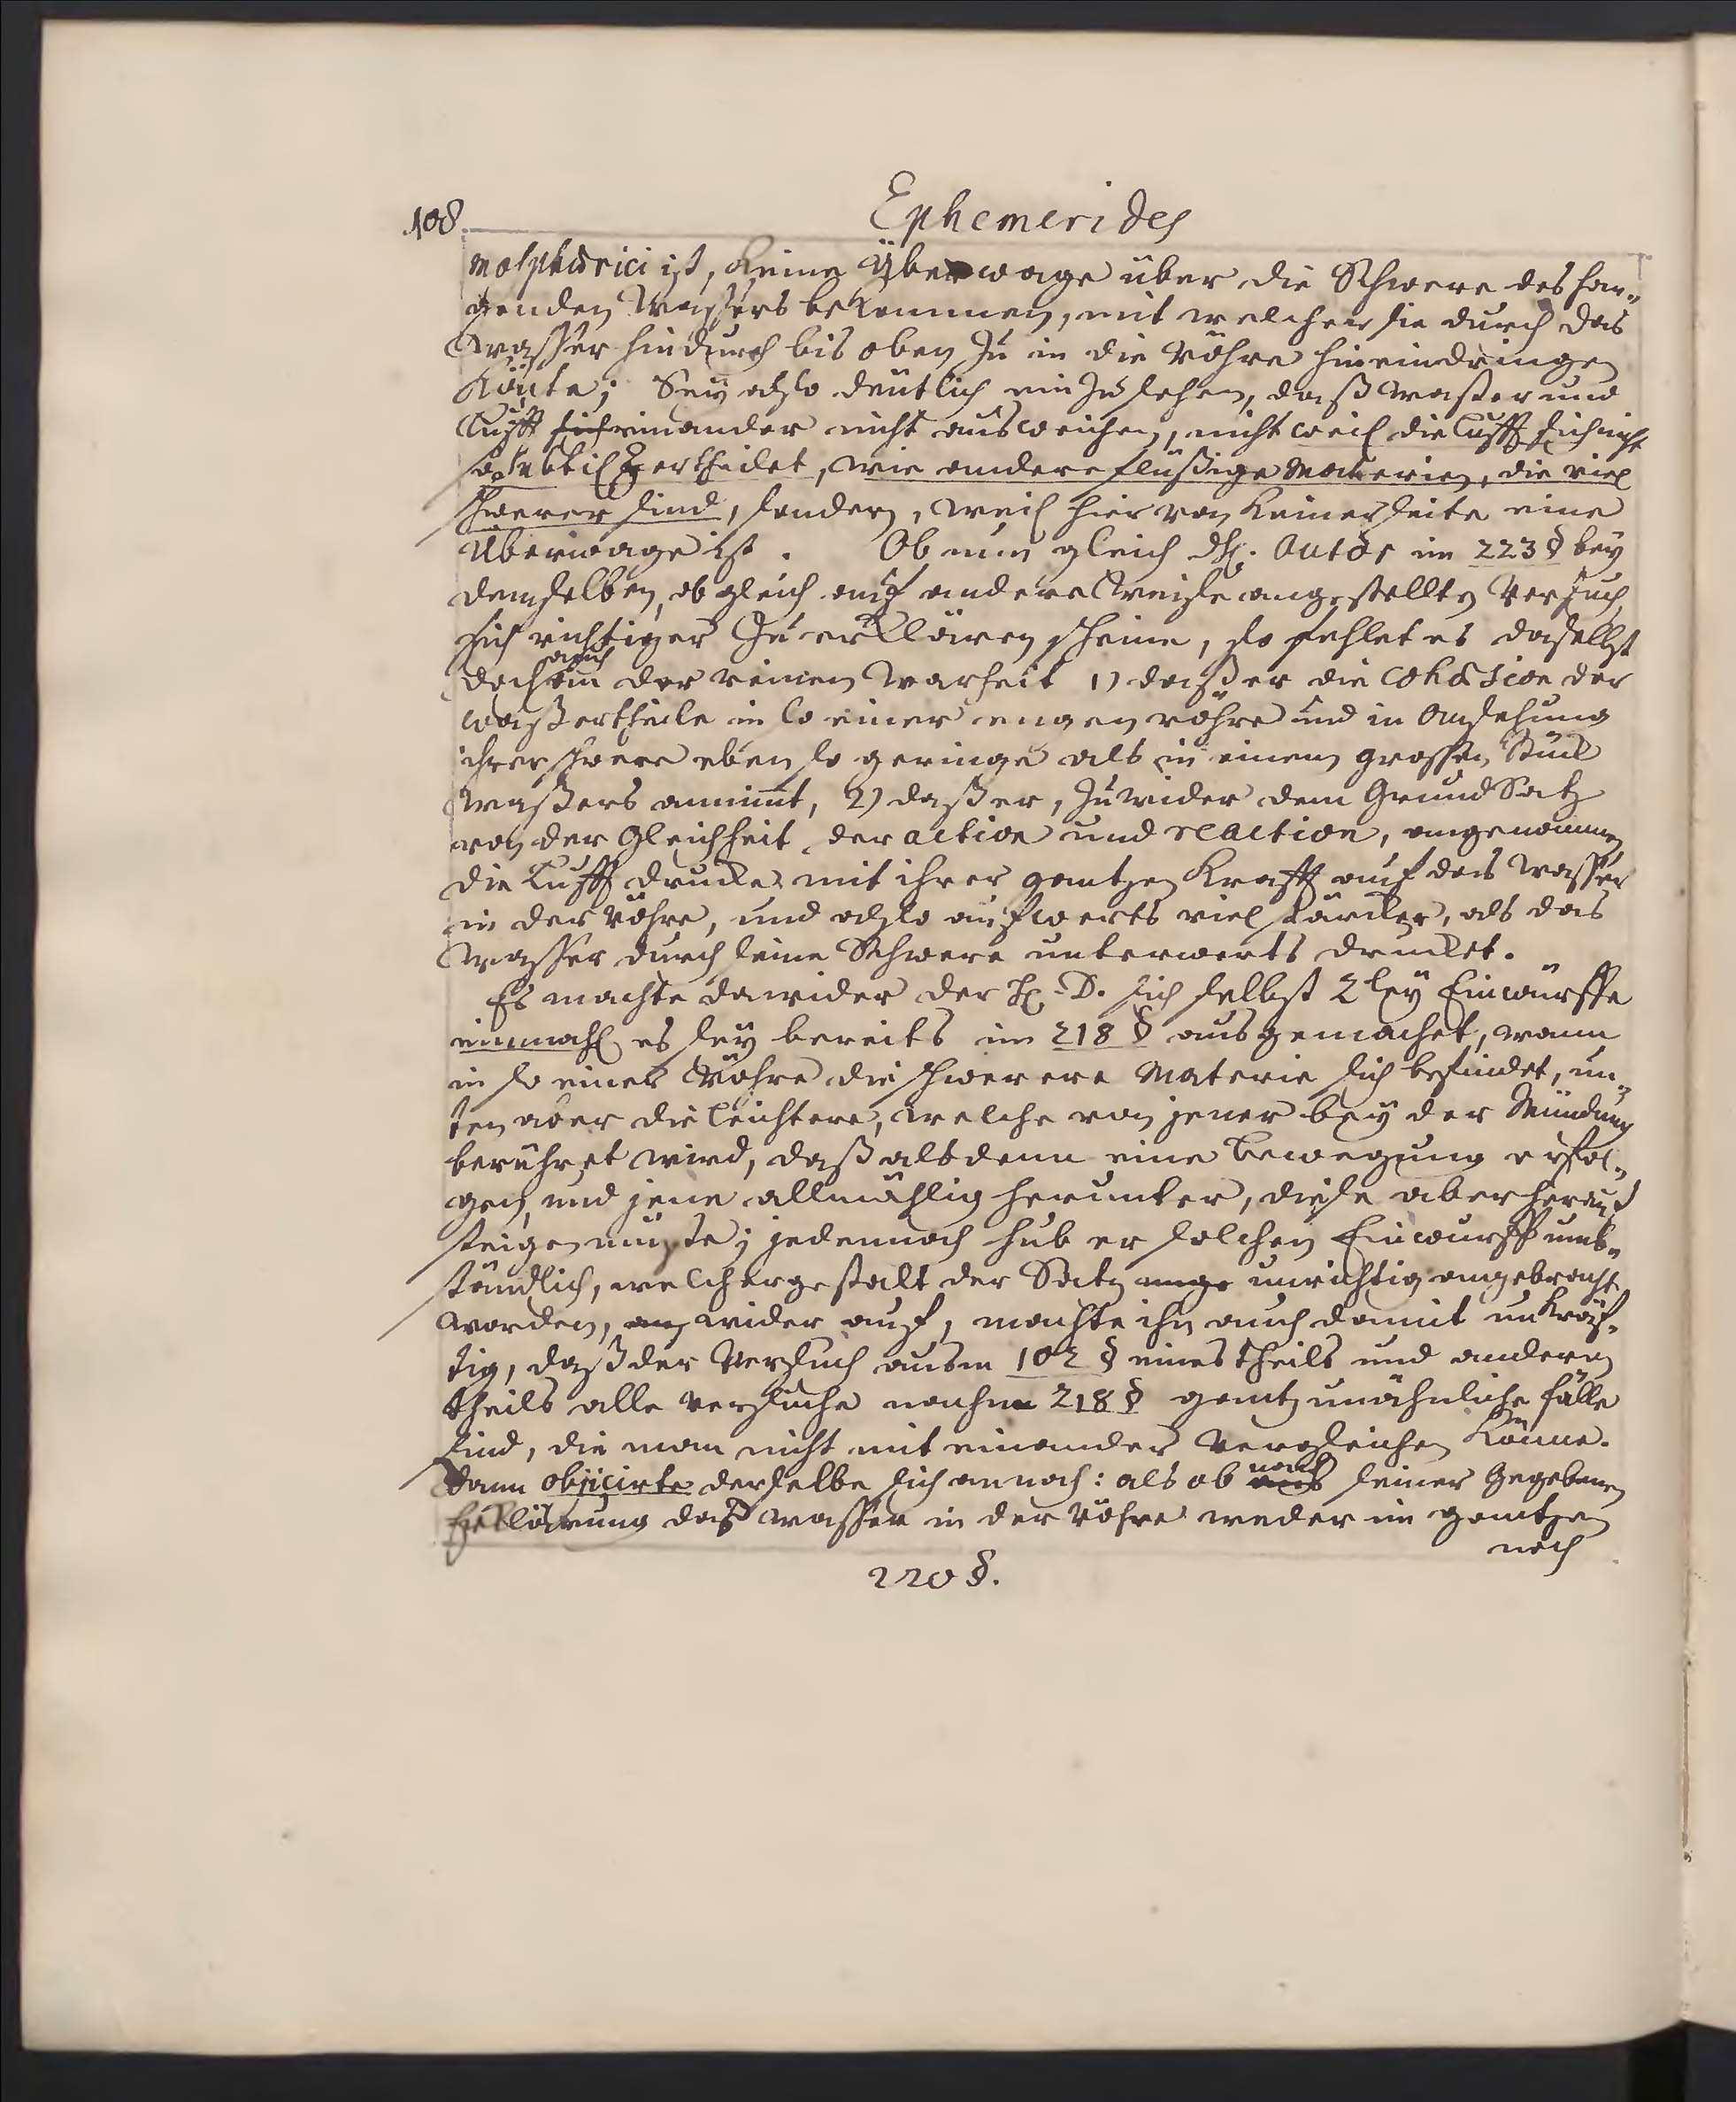 108
Ephemerides
mosphærici ist, keine Überwage über die Schwere des han-
genden Wassers bekommen, mit welcher sie durch das
Wasser hindurch bis oben zu in die Röhre hineindringen
könte; Seÿ also deütlich einzusehen, daß Waßer und
Lufft sich einander nicht ausweichen, nicht weil die Lufft sich nicht
so subtil zertheilet, wie andere flüßige Materien, die viel
schwerer sind, sondern, weil hier von keiner seite eine
Überwage ist. Ob nun gleich H. Autor im 223 § beÿ
demselben, obgleich auf andere Weise angestellten Versuch,
sich richtiger zu erklären scheine, so fehlet es daselbst
auch
doch an der reinen Warheit 1) daß er die Cohæsion der
waßertheile in so einer engen röhre und in Ansehung
ihrer schwere eben so geringe als in einem grossen Stück
Waßers annimt, 2) daß er, zuwider dem Grund Satz
von der Gleichheit der action und reaction, angenommen,
die Lufft drucke mit ihrer gantzen Krafft auf das Wasser
in der röhre, und also aufwerts viel stärcker, als das
Wasser durch seine Schwere unterwerts drucket.
Es machte dawider der H. D. sich selbst 2leÿ Einwürffe
einmahl es seÿ bereits im 218 § ausgemachet, wann
in so einer Röhre die schwerere Materie sich befindet, un-
ten aber die leichtere, welche von jener beÿ der Mündung
berühret wird, daß alsdenn eine bewegung erfol-
gen, und jene allmählig herunter, diese aber herauf
steigen müste; jedennoch hub er solchen Einwurff umb-
ständlich, welchergestalt der Satz unrichtig angebracht
worden, wider auf, machte ihn auch damit unkräf-
tig, daß der Versuch ausm 102 § eines theils und andern
theils alle versuche nachm 218 § gantz unähnliche fälle
sind, die man nicht mit einander vergleichen könne.
nach
dann objicirte derselbe sich annoch: als ob seiner gegebenen
Erklärung das wasser in der röhre weder im gantzen
noch
220 §.